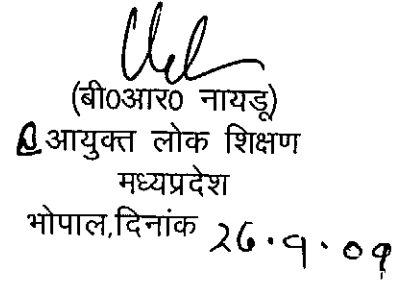 (बी0आर0 नायडू)
आयुक्त लोक शिक्षण
मध्यप्रदेश
भोपाल,दिनांक 26.9.09